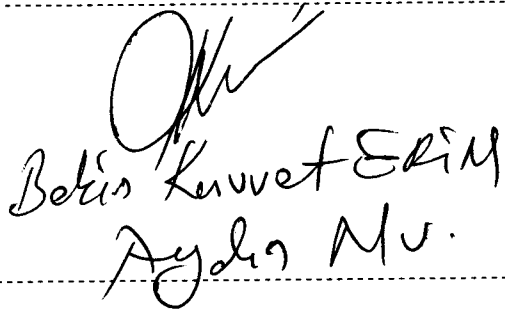 Bekir Kuvvet ERİM
Aydın Mv.